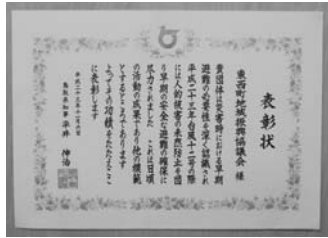 表彰状
東西町地域振興協議会 様
貴団体は災害時における早期
避難の必要性を深く認識され
平成二十三年台風十二号の際
には人的被害の未然防止を図
り早期の安全な避難の確保に
尽力されました これは日頃
の活動の成果であり他の模範
とするところであります
よってその功績をたたえここ
に表彰します
平成二十三年十一月六日
鳥取県知事 平井 伸治